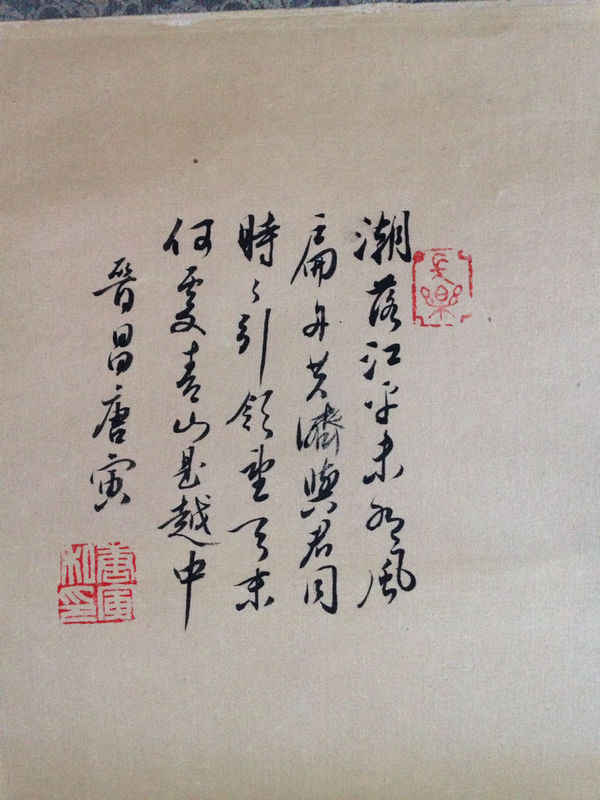 長樂
潮落江平未有風
扁舟共濟與君同
時々引領望天末
何處青山是越中
晉昌唐寅
唐寅
私印